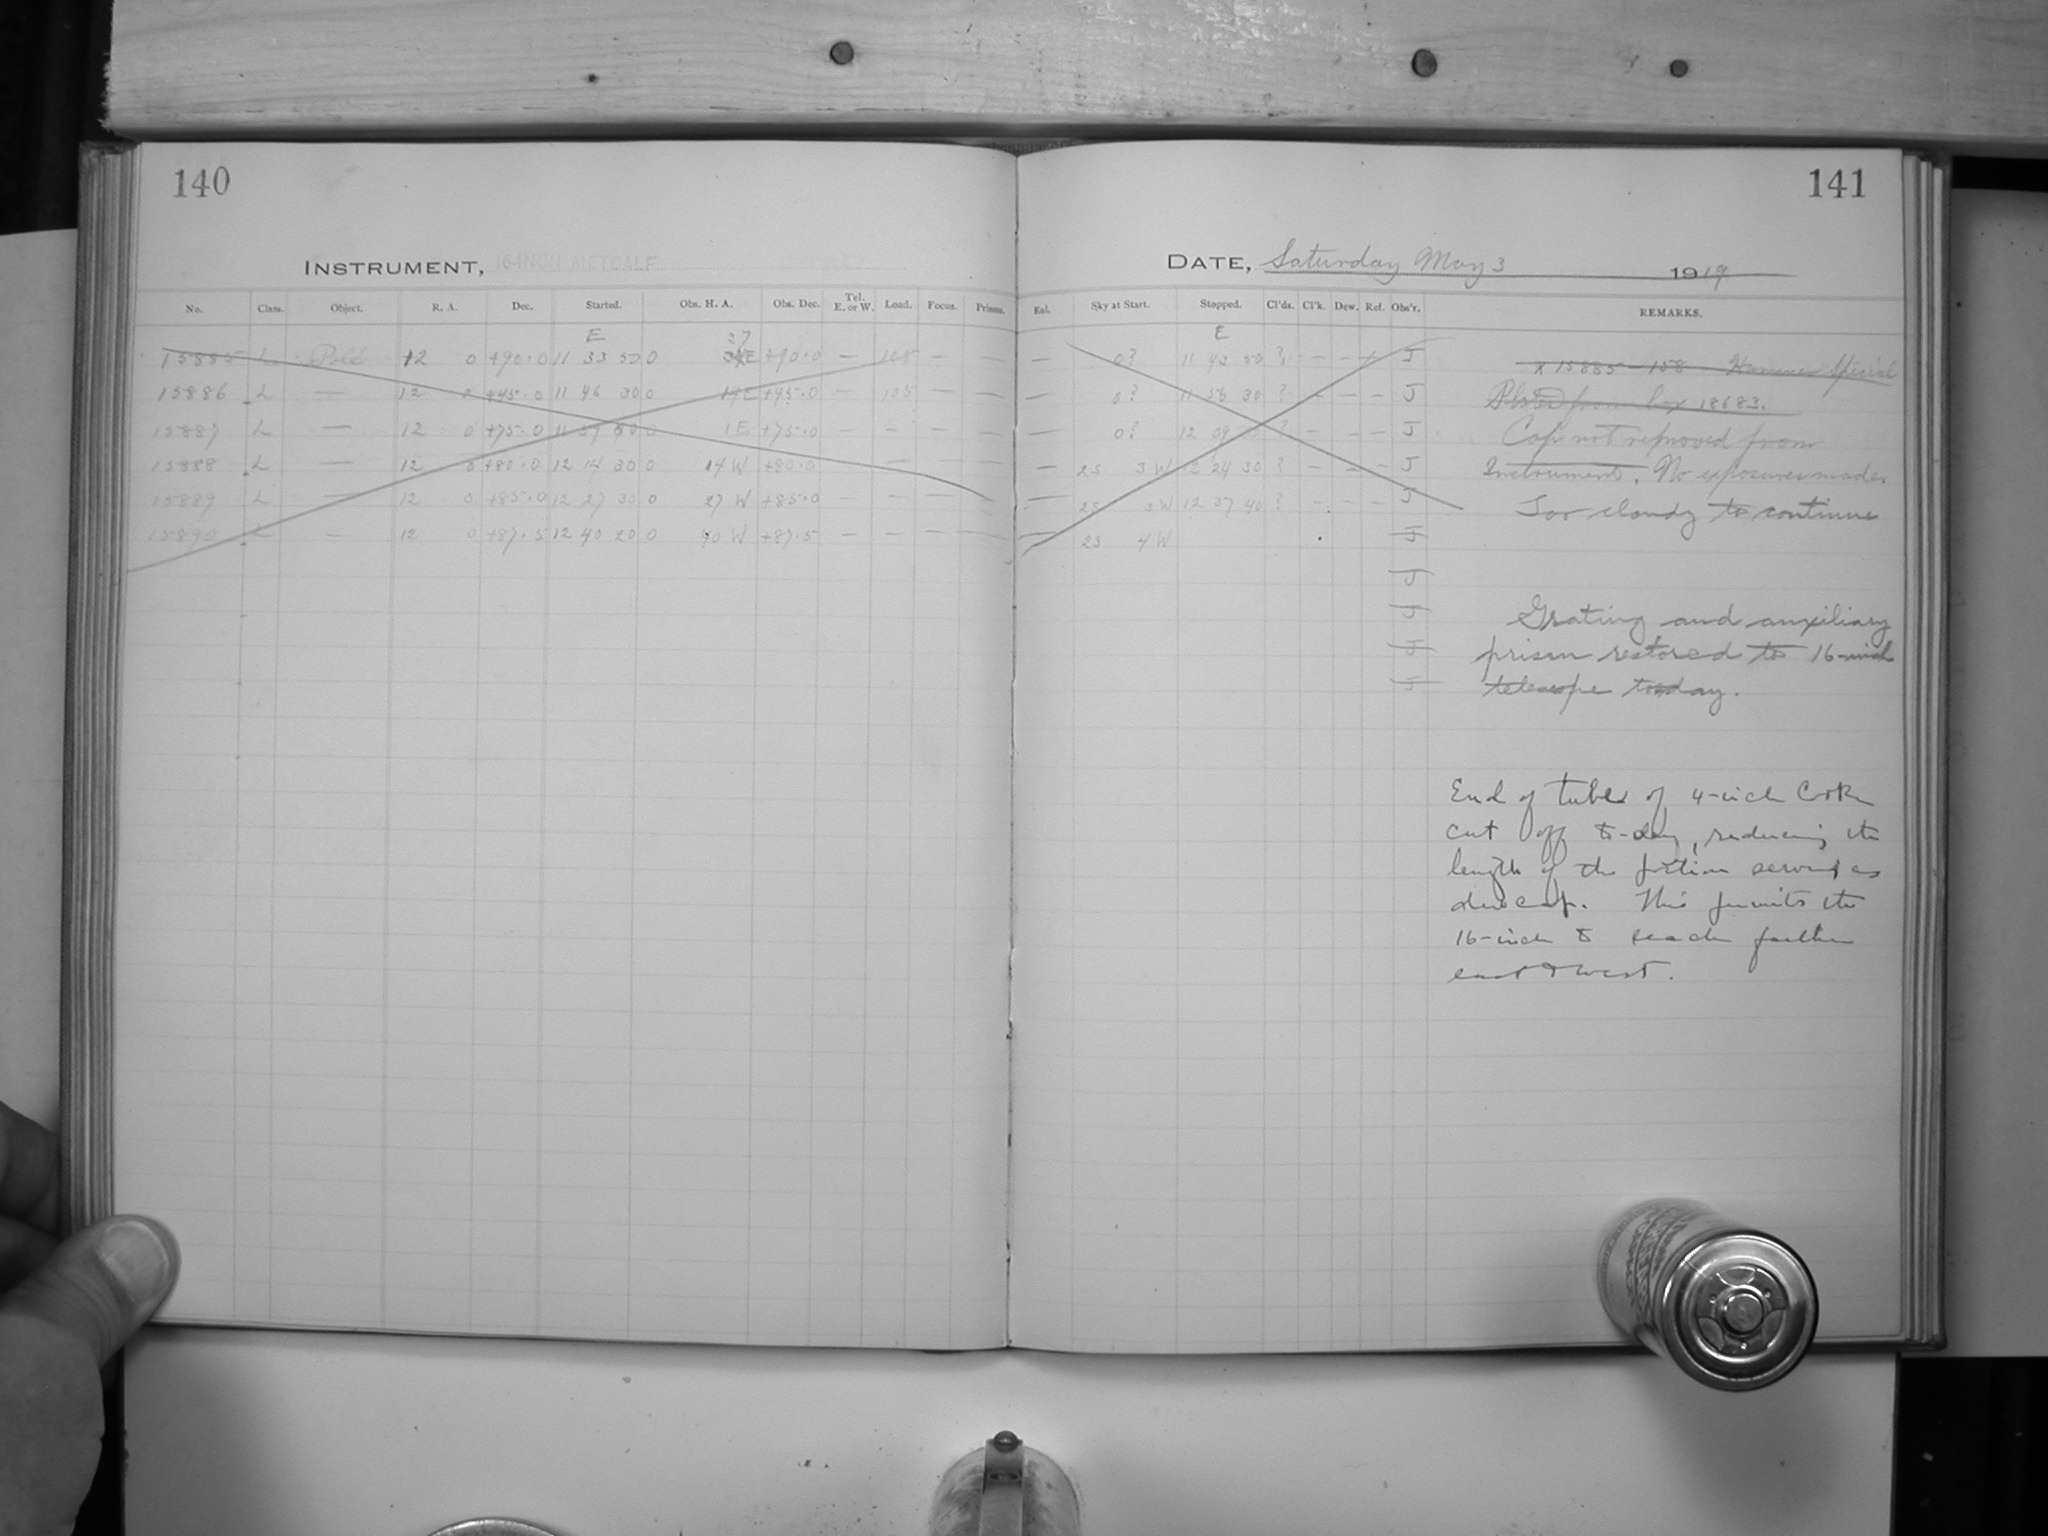 140
141
INSTRUMENT, 16-INCH METCALF
DATE, Saturday May 3 1919
No. Class. Object. R. A. Dec. Started. Obs. H. A. Obs. Dec. Tel. E. or W. Load. Focus. Prisms.
Exl. Sky at Start. Stopped. Cl'ds. Cl'k. Dew. Ref. Obs'r. REMARKS.
E 37 E
15885 L Pole 12 0 +90.0 11 33 50 0 E +90.0 — 105 — — — 0? 11 43 50 ? — — J
x 15885 - 158 Hammer Special
15886 L — 12 0 +45.0 11 46 30 0 14E +45.0 — 105 — — — 0? 11 56 30 ? — — — J
Plates from box 18683.
15887 L — 12 0 +75.0 11 59 0 1 E +75.0 — — — — — 0? 12 09 ? — — — J
Cap not removed from
15888 L — 12 0 +80.0 12 14 30 0 14 W +80.0 — — — — 2S 3 W 12 24 30 ? — — — J
Instrument. No exposures made.
15889 L — 12 0 +85.0 12 27 30 0 27 W +85.0 — — — — 2S 3 W 12 37 40 ? — — J
Too cloudy to continue
15890 L — 12 0 +87.5 12 40 20 0 40 W +87.5 — — — — — 2S 4 W J
J
J
Grating and auxiliary
J
prism restored to 16-inch
J
telescope today.
End of tube of 4-inch Cooke
cut off to-day, reducing the
length of the portion serving as
dew cap. This permits the
16-inch to reach farther
east & west.